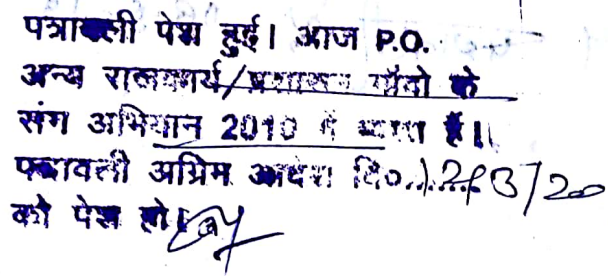 पत्रावली पेश हुई। आज P.O.
अन्य राजकार्य/प्रशासन गाँवो के
संग अभियान 2010 में व्यस्त हैं।
पत्रावली अग्रिम आदेश दि०
को पेश हो।